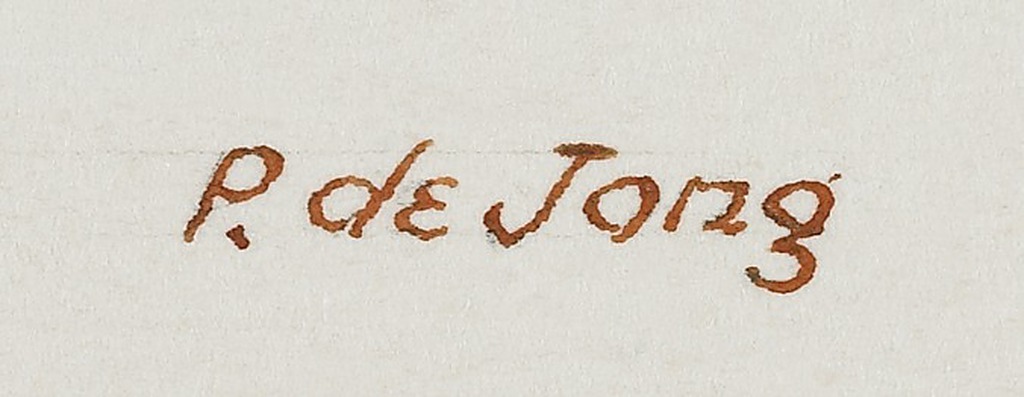 P. de Jong